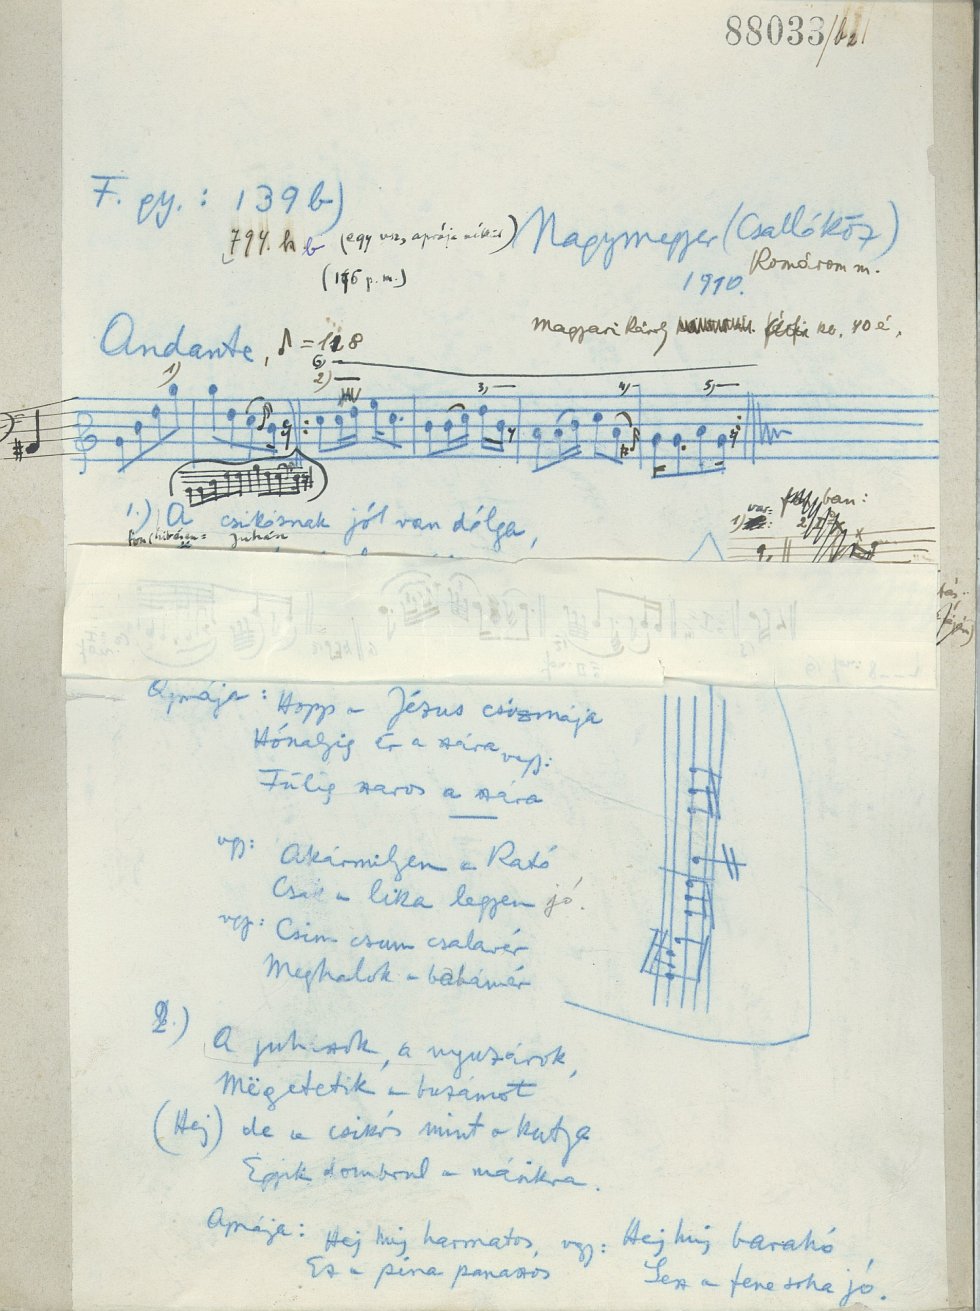 88033/
F. gy.: 139 b)
794. b (egy vsz, aprája nélkül)
Nagymegyer (Csallóköz)
(116 p. m.)
Komárom m.
1910.
Magyari Károly kb. 40 é.
Andante, ♪ = 118
6)
1) 2) 3, 4, 5,
1.) A csikósnak jól van dólga,
juhász
var. ban:
1)
Aprája: Hopp a Jézus csizmája
Hónaljig ér a szára
vagy:
Fülig szaros a szára
vagy: Akármilyen a Kató
Csak a lika legyen jó.
vagy: Csim csum csalavér
Meghalok a babámér
2.) A juhászok, a nyuzárok,
Mëgetetik a buzámot
(Hej) de a csikós mint a kutya
Egyik dombrul a másikra.
Aprája: Hej huj harmatos, vagy: Hej huj barahó
Ez a pina panaszos
Lesz a fene soha jó.